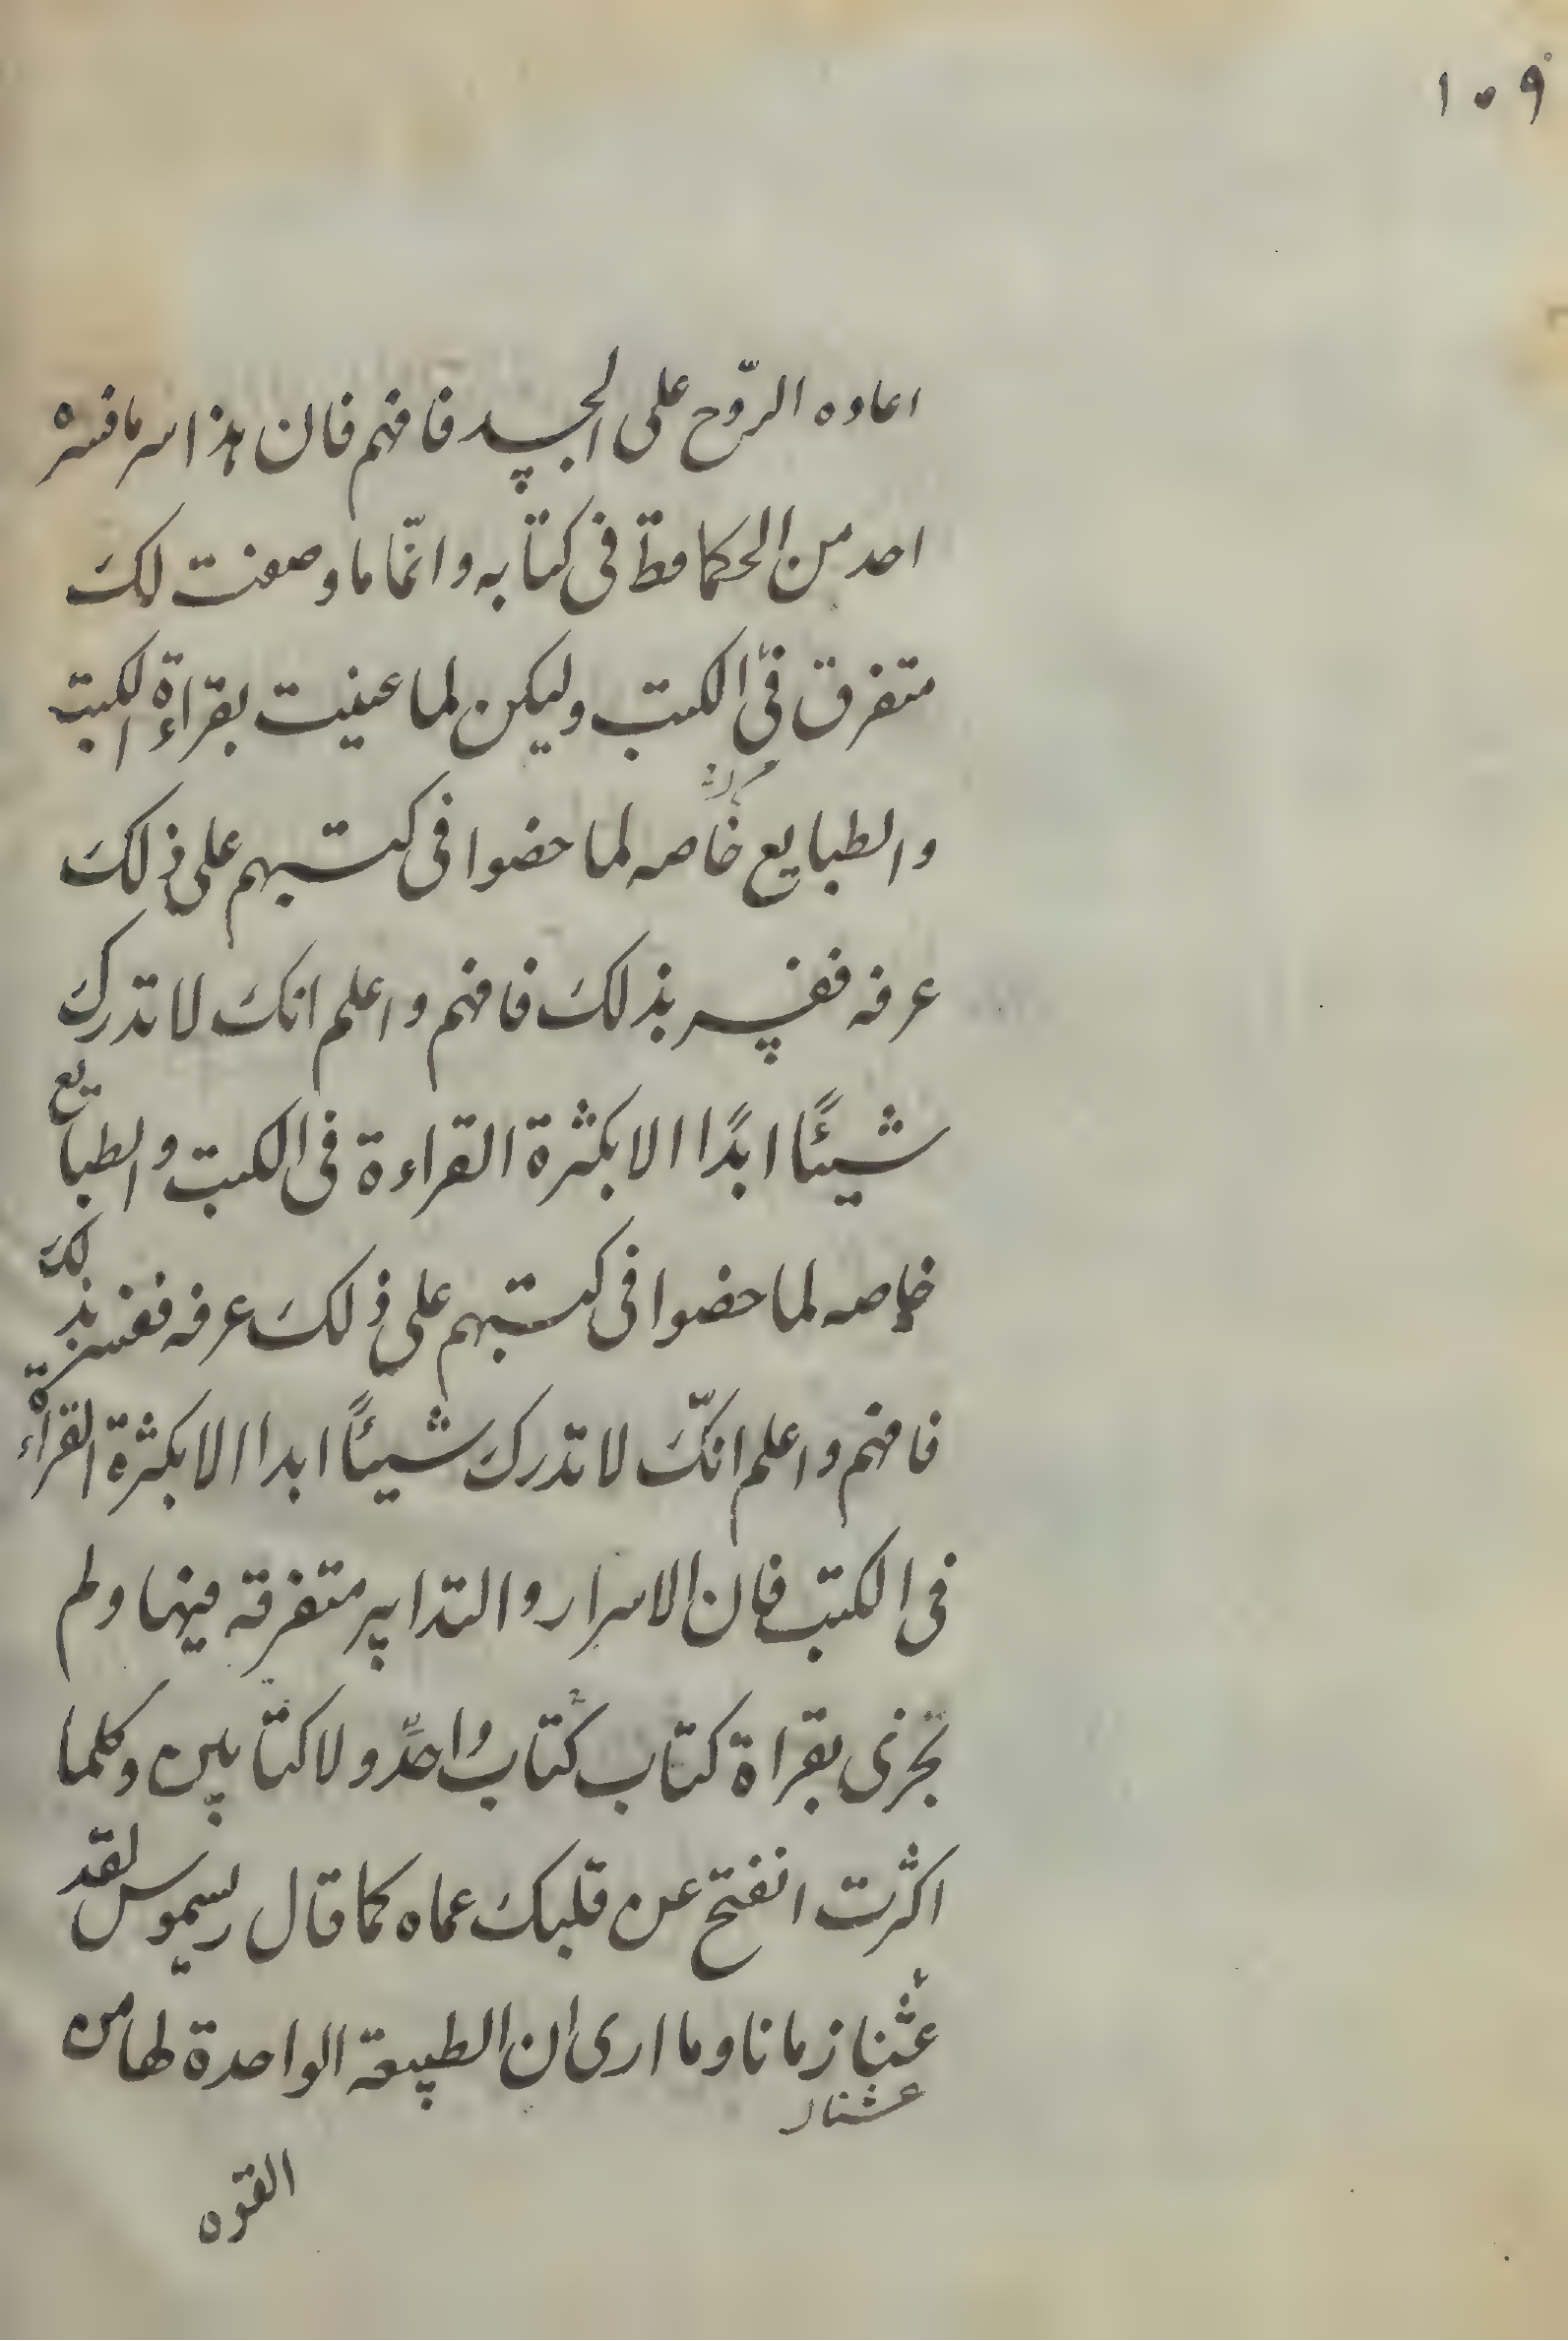 ١٠٩
اعاده الرّوح على الجسد فافهم فان هذا سر ما فسره
احد من الحكما قط فى كتابه وانّما ما وصفت لك
متفرق فى الكتب وليكن لما عنيت بقراءة الكتب
والطبايع خاصه لما حضوا فى كتبهم على ذلك
عرفه ففسر بذلك فافهم واعلم انك لا تدرك
شيئًا ابدًا الا بكثرة القراءة فى الكتب والطبايع
خاصه لما حضوا فى كتبهم على ذلك عرفه ففسر بذلك
فافهم واعلم انّك لا تدرك شيئًا ابدا الا بكثرة القراءة
فى الكتب فان الاسرار والتدابير متفرقه فيها ولم
تجزى بقراة كتاب كتاب واحدٍ ولا كتابين وكلما
اكثرت انفتح عن قلبك عماه كما قال ريسموس لقد
عشنا زمانا وما ارى ان الطبيعة الواحدة لها من
عشنا
القوه